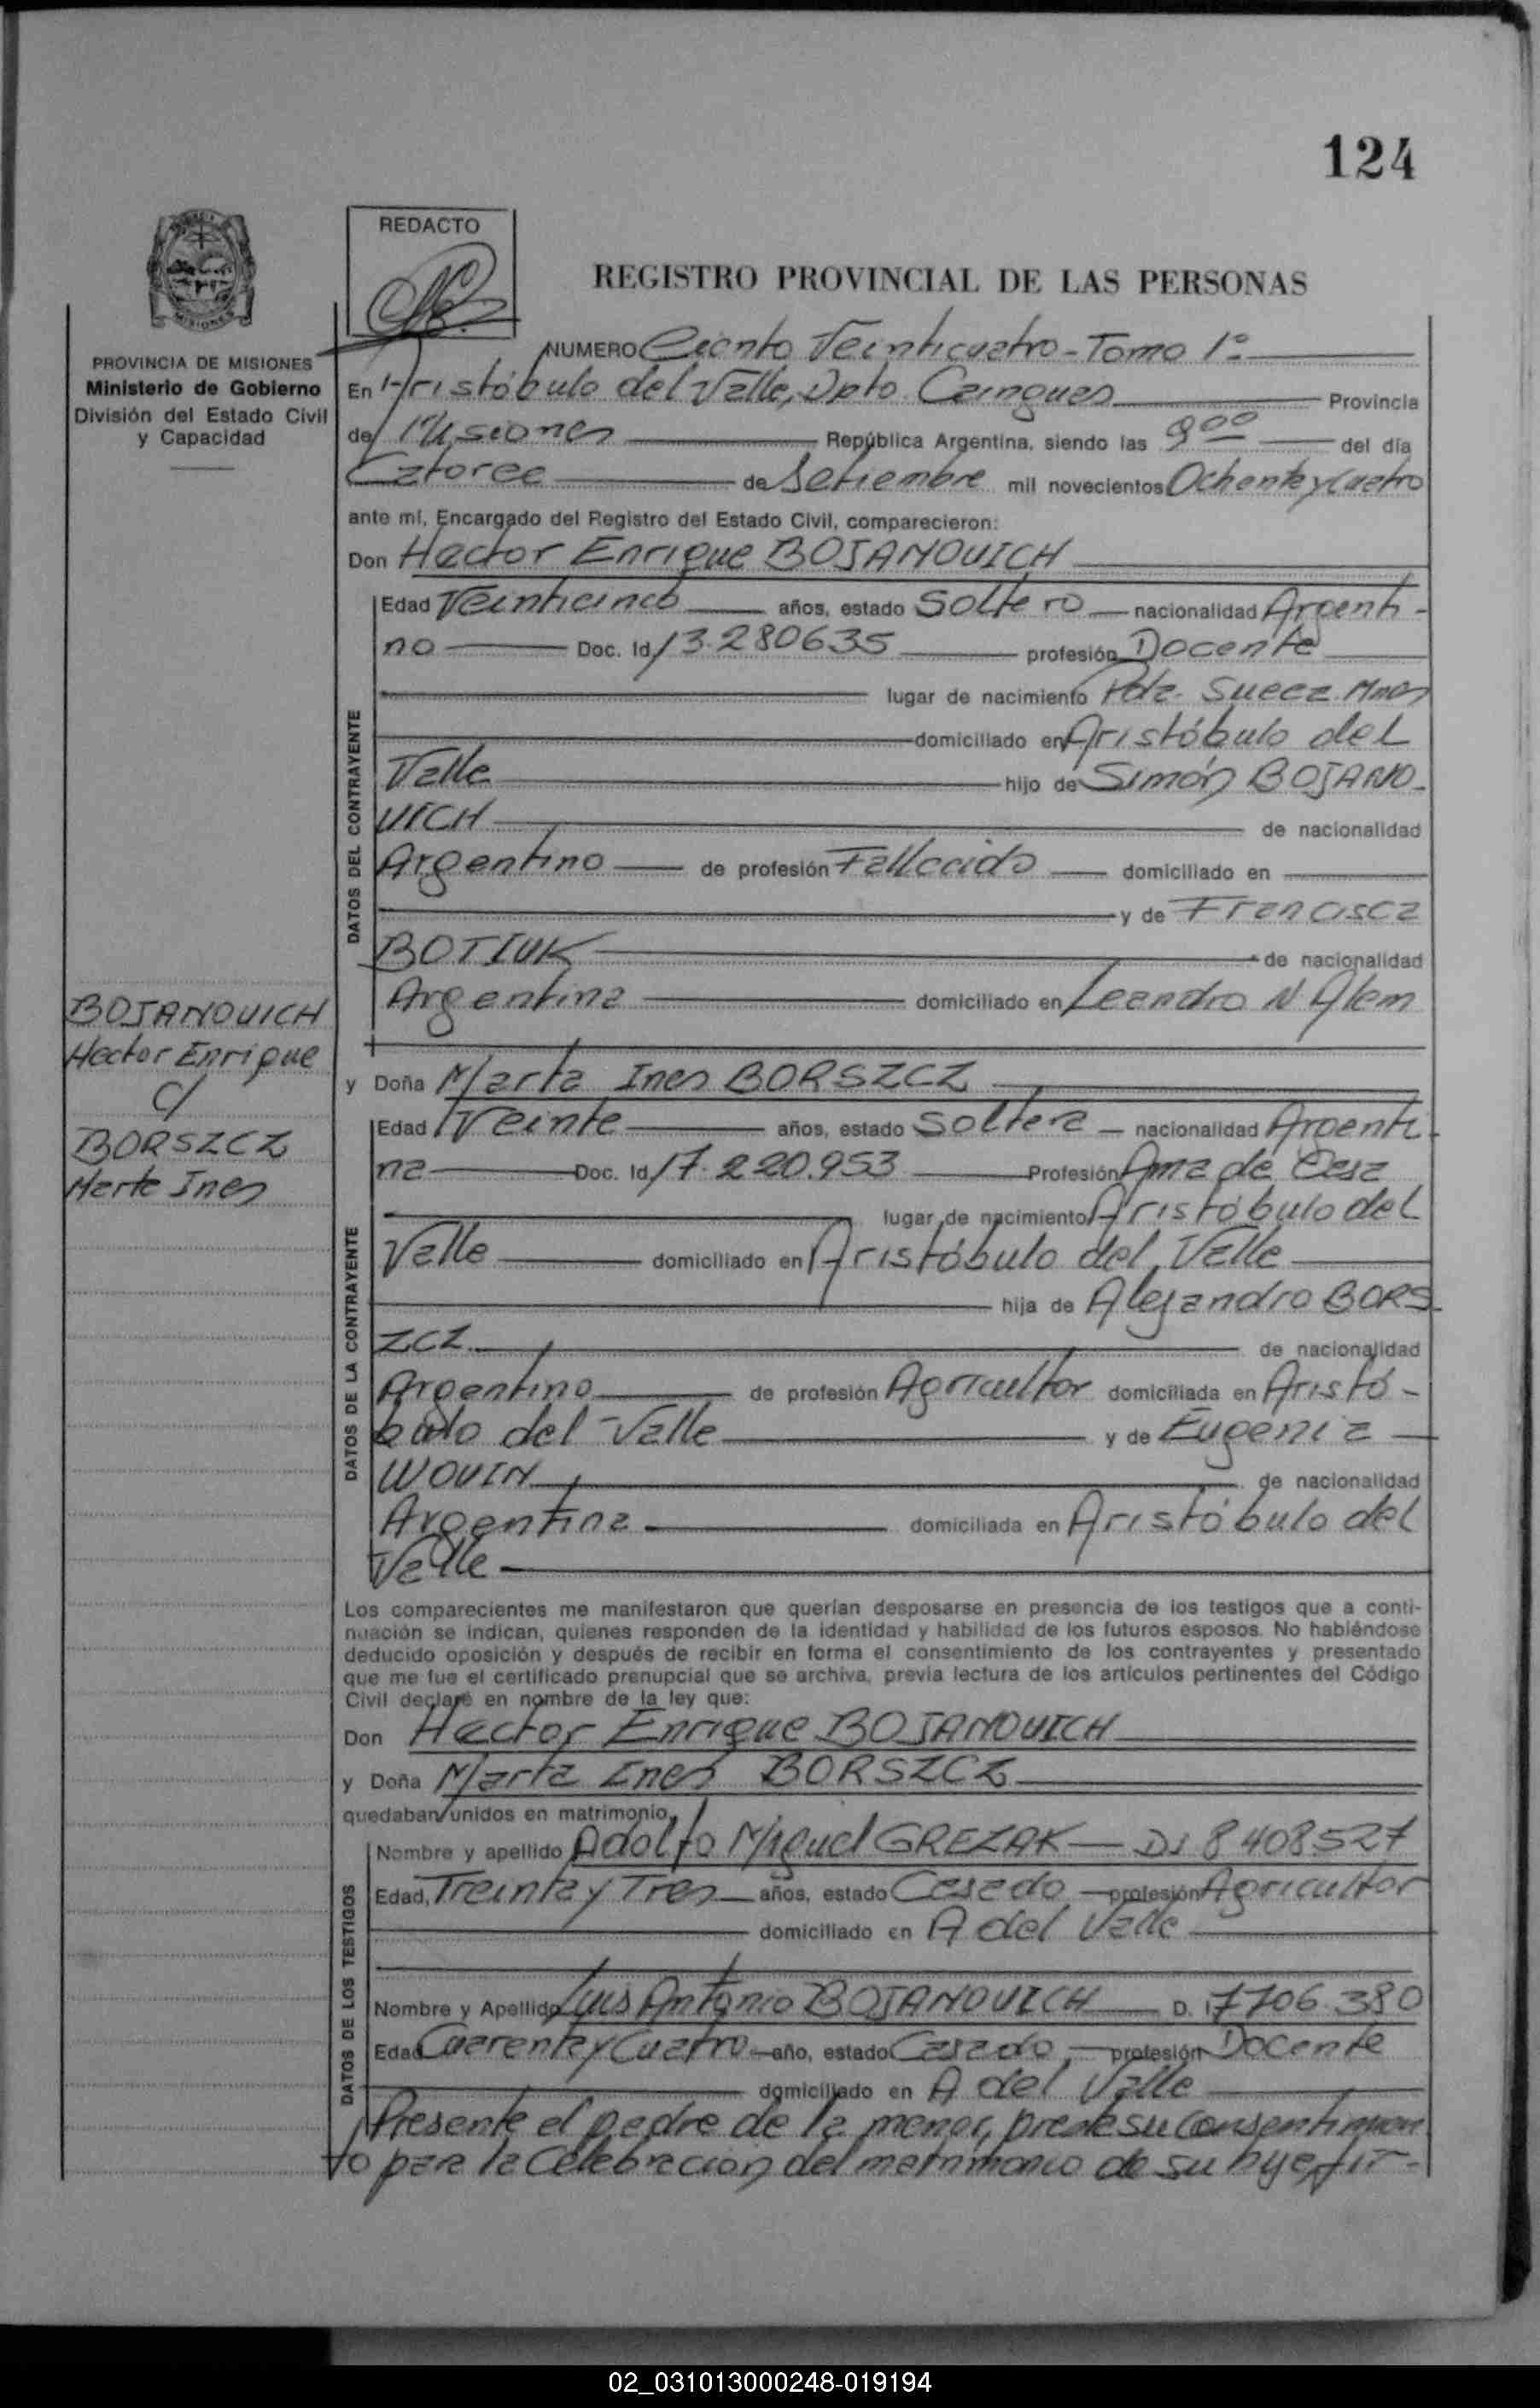 124
REDACTO
REGISTRO PROVINCIAL DE LAS PERSONAS
MISIONES
PROVINCIA DE MISIONES
Ministerio de Gobierno
División del Estado Civil
y Capacidad
NUMERO Ciento Veinticuatro - Tomo 1º
En Aristóbulo del Valle, Dpto. Cainguas Provincia
de Misiones República Argentina, siendo las 9 00 del día
Catorce de Setiembre mil novecientos Ochenta y Cuatro
ante mí, Encargado del Registro del Estado Civil, comparecieron:
Don Hector Enrique BOJANOVICH
DATOS DEL CONTRAYENTE
Edad Veinticinco años, estado Soltero nacionalidad Argenti-
no Doc. Id. 13.280635 profesión Docente
lugar de nacimiento Pda. Sueca Mnes
domiciliado en Aristóbulo del
Valle hijo de Simón BOJANO-
VICH de nacionalidad
Argentino de profesión Fallecido domiciliado en
y de Francisca
BOTIUK de nacionalidad
Argentina domiciliado en Leandro N. Alem
BOJANOVICH
Hector Enrique
c/
BORSZCZ
Marta Ines
y Doña Marta Ines BORSZCZ
DATOS DE LA CONTRAYENTE
Edad Veinte años, estado Soltera nacionalidad Argenti-
na Doc. Id. 17.220.953 Profesión Ama de Casa
lugar de nacimiento Aristóbulo del
Valle domiciliado en Aristóbulo del Valle
hija de Alejandro BORS-
ZCZ de nacionalidad
Argentino de profesión Agricultor domiciliada en Aristó-
bulo del Valle y de Eugenia
WOUIN de nacionalidad
Argentina domiciliada en Aristóbulo del
Valle
Los comparecientes me manifestaron que querían desposarse en presencia de los testigos que a conti-
nuación se indican, quienes responden de la identidad y habilidad de los futuros esposos. No habiéndose
deducido oposición y después de recibir en forma el consentimiento de los contrayentes y presentado
que me fue el certificado prenupcial que se archiva, previa lectura de los artículos pertinentes del Código
Civil declaré en nombre de la ley que:
Don Hector Enrique BOJANOVICH
y Doña Marta Ines BORSZCZ
quedaban unidos en matrimonio.
DATOS DE LOS TESTIGOS
Nombre y apellido Adolfo Miguel GREZAK DI 8408527
Edad, Treinta y Tres años, estado Casado profesión Agricultor
domiciliado en A del Valle
Nombre y Apellido Luis Antonio BOJANOVICH D. I 7706.380
Edad Cuarenta y Cuatro año, estado Casado profesión Docente
domiciliado en A del Valle
Presente el padre de la menor, presta su consentimien
to para la celebracion del matrimonio de su hija, fir-
02_031013000248-019194